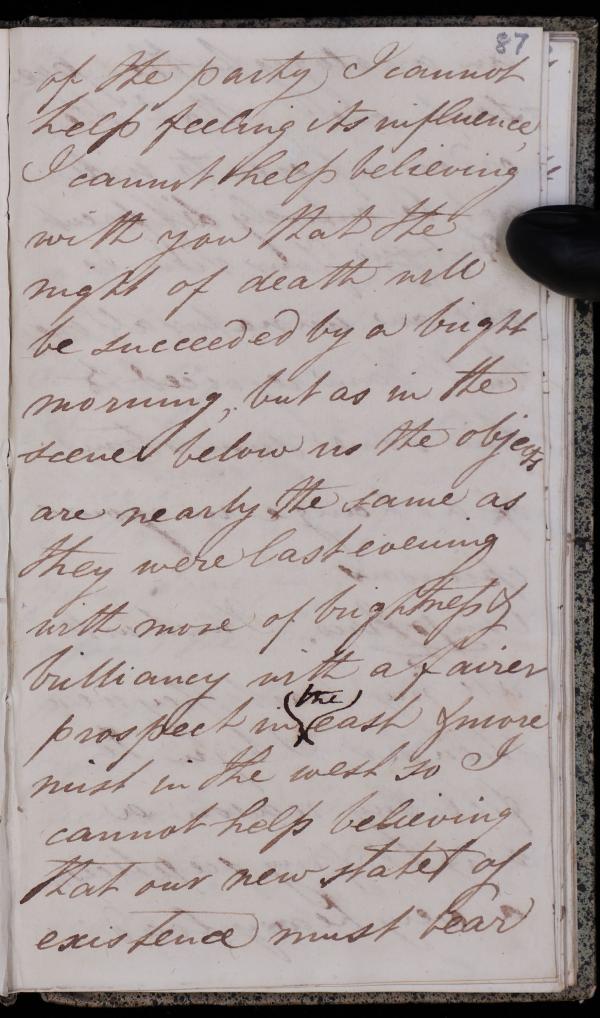 87
of the party I cannot
help feeling its influence,
I cannot help believing
with you that the
night of death will
be succeeded by a bright
morning, but as in the
scene below us the objects
are nearly the same as
they were last evening
with more of brightness &
brilliancy with a fairer
prospect in (the) east & more
mist in the west so I
cannot help believing
that our new state of
existence must bear